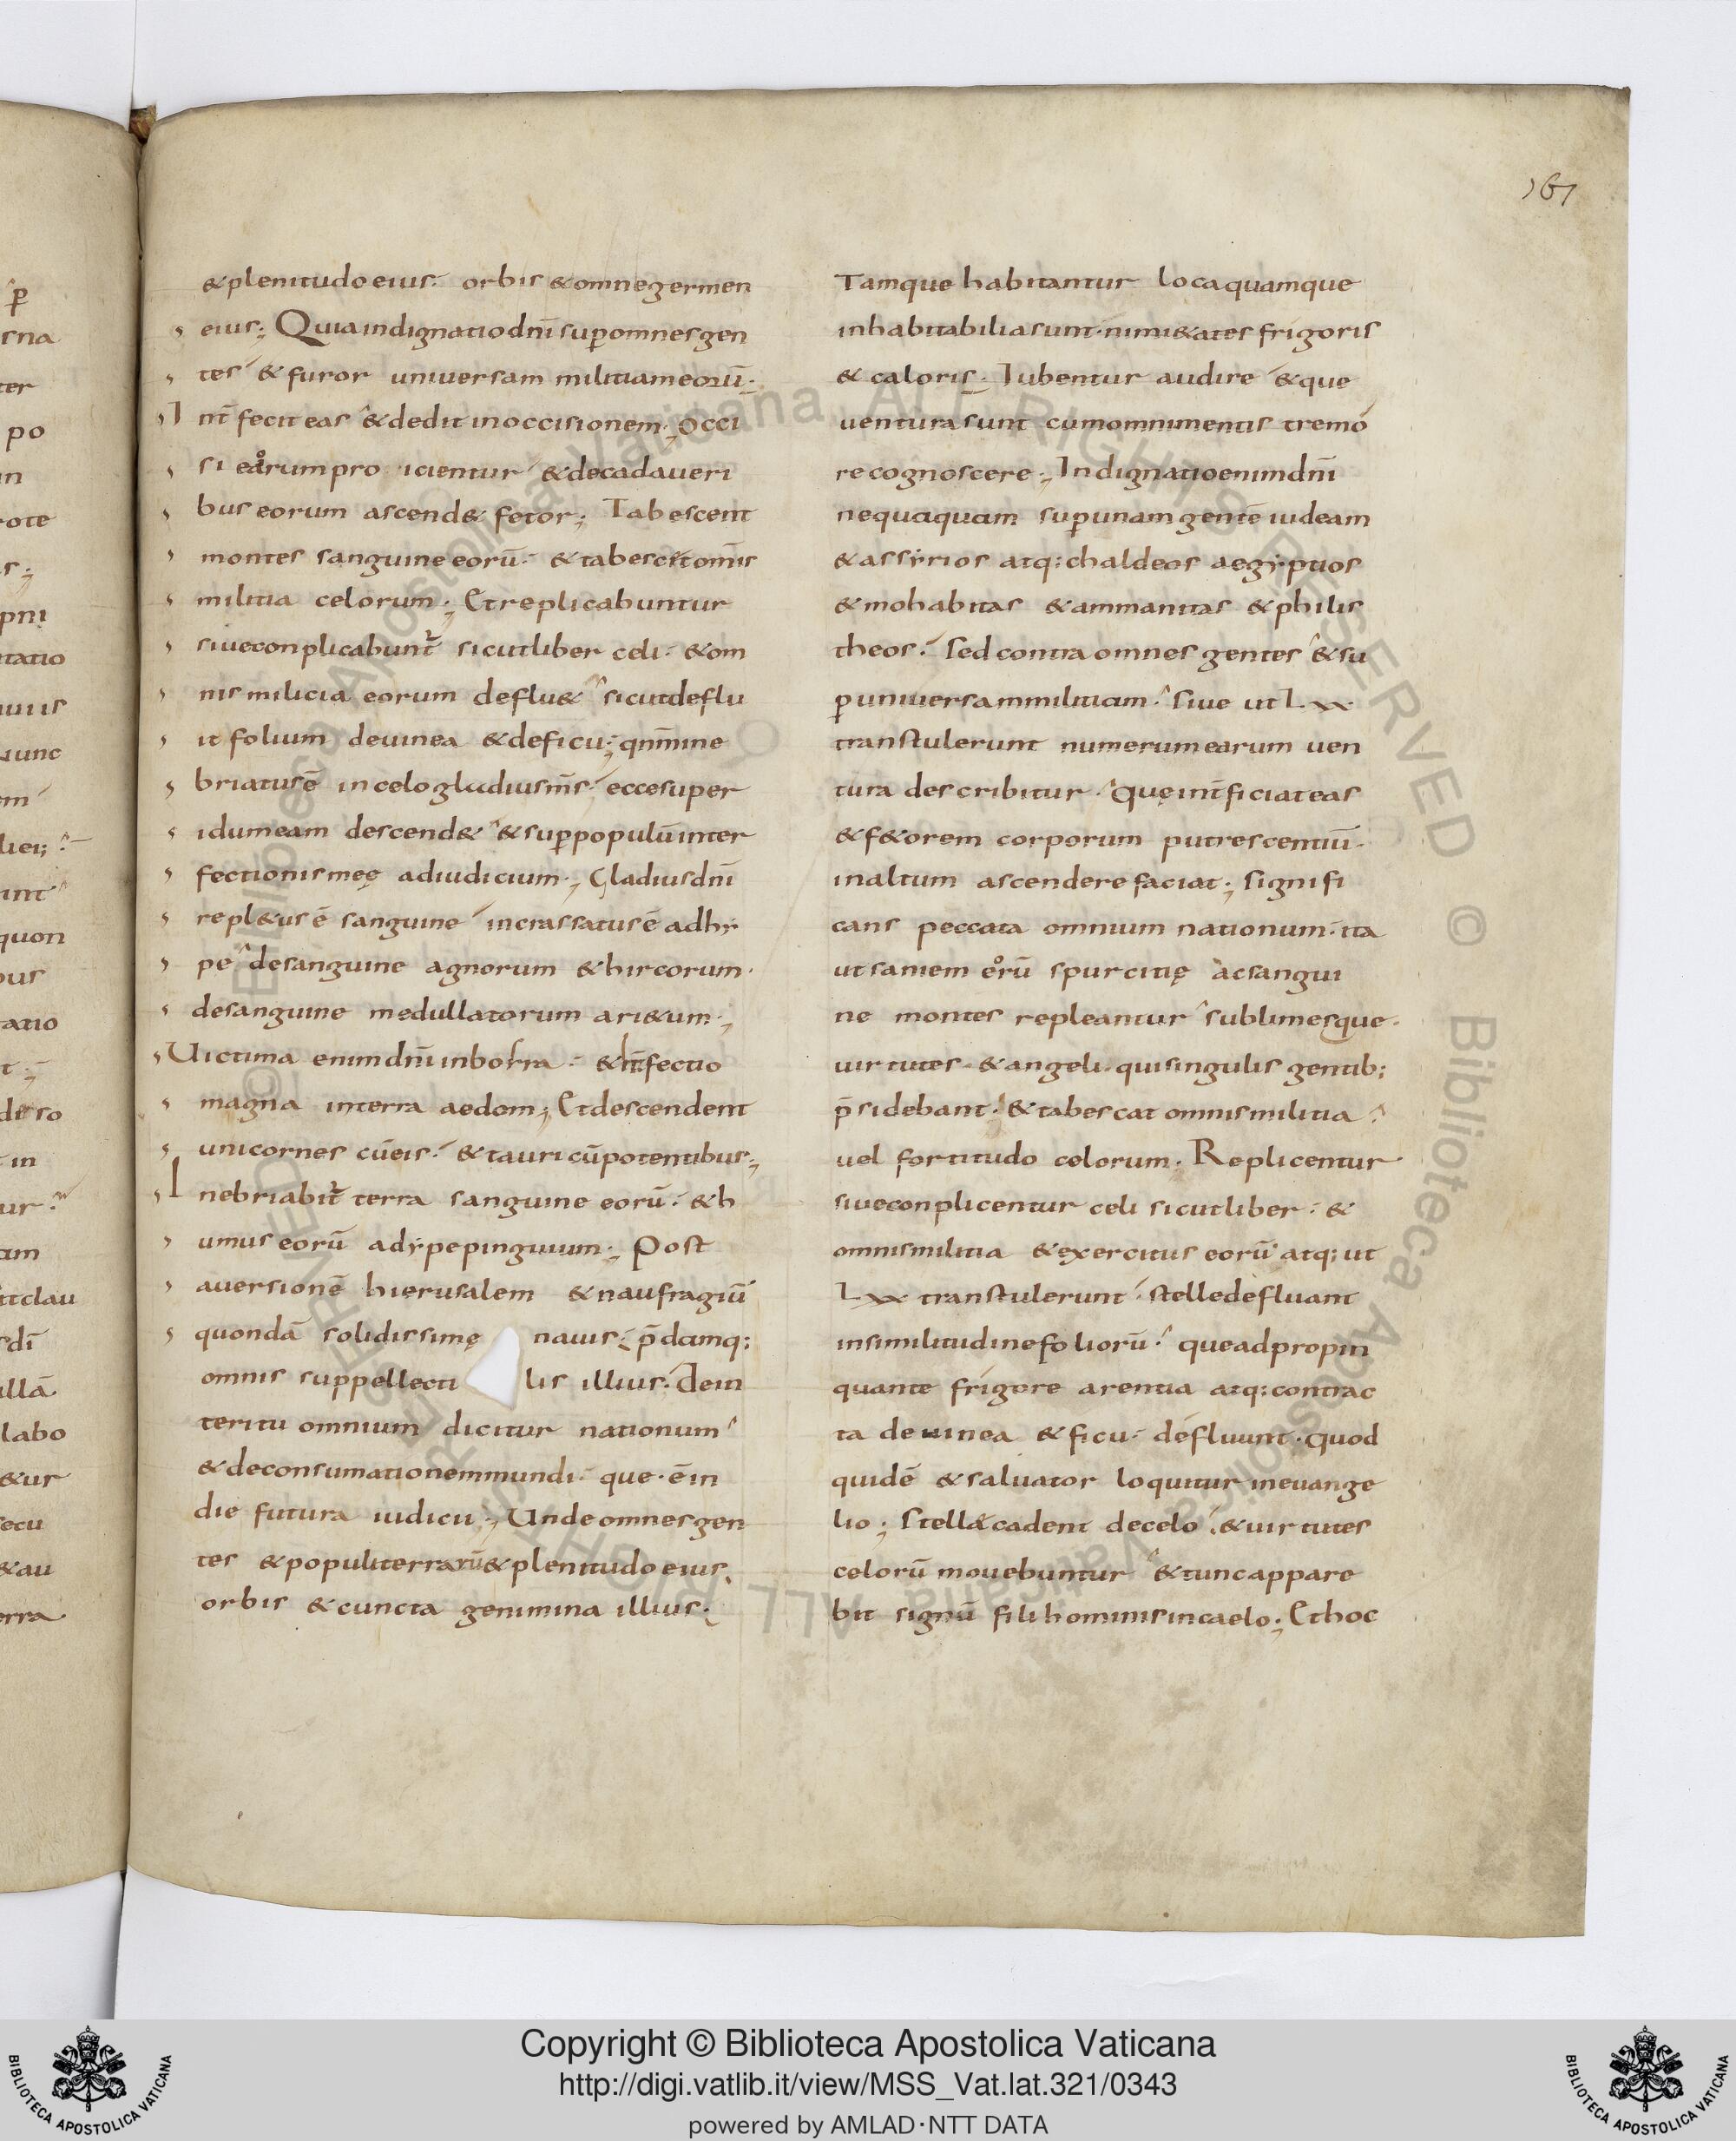 161
& plenitudo eius: orbis & omne germen
eius; Quia indignatio dn̄i sup omnes gen
tes & furor uniuersam militiam eorū;
Int̄ fecit eas & dedit in occisionem; Occi
si eorum pro icientur & de cadaueri
bus eorum ascend& fetor; Tabescent
montes sanguine eorū: & tabescit om̄is
militia celorum; Et replicabuntur
siue conplicabunt̄ sicut liber celi: & om
nis milicia eorum deflu& sicut deflu
it folium de uinea & de ficu; qn̄m ine
briatus ē in celo gladius m̄s ecce super
idumeam descend& & sup populū inter
fectionis meę ad iudicium; Gladius dn̄i
repl&us ē sanguine incrassatus ē adhy
pe de sanguine agnorum & hircorum.
de sanguine medullatorum ari&um;
Uictima enim dn̄i in bosra: & int̄fectio
magna in terra aedom; Et descendent
unicornes cū eis: & tauri cū potentibus;
Inebriabit̄ terra sanguine eorū: & h
umus eorū adype pinguium; Post
auersionē hierusalem & naufragiū
quondā solidissimę nauis: p̄damq;
omnis suppellecti lis illius. de in
teritu omnium dicitur nationum
& de consumationem mundi: que. ē in
die futura iudicii; Unde omnes gen
tes & populi terrarū & plenitudo eius
orbis & cuncta genimina illius.
Tamque habitantur loca quamque
inhabitabilia sunt. nimi&ates frigoris
& caloris. Iubentur audire & que
uentura sunt cum omni mentis tremo
re cognoscere; Indignatio enim dn̄i
nequaquam sup unam gentē iudeam
& assyrios atq; chaldeos aegyptios
& mohabitas & ammanitas & philis
theos: Sed contra omnes gentes & su
p uniuersam militiam. Siue ut Lxx
transtulerunt numerum earum uen
tura describitur. Quę int̄ficiat eas
& f&orem corporum putrescentiū.
in altum ascendere faciat; signifi
cans peccata omnium nationum. ita
ut saniem eorū spurcitię ac sangui
ne montes repleantur sublimesque.
uirtutes. & angeli. qui singulis gentib;
p̄sidebant: & tabescat omnis militia
uel fortitudo celorum. Replicentur
siue conplicentur celi sicut liber: &
omnis militia & exercitus eorū atq; ut
Lxx transtulerunt: stelle defluant
in similitudine foliorū: que ad propin
quante frigore arentia atq; contrac
ta de uinea & ficu: defluunt. quod
quidē & saluator loquitur in euange
lio; Stellæ cadent de celo & uirtutes
celorū mouebuntur & tunc appare
bit signū fili hominis in caelo; Et hoc
Copyright © Biblioteca Apostolica Vaticana
http://digi.vatlib.it/view/MSS_Vat.lat.321/0343
powered by AMLAD·NTT DATA
BIBLIOTECA APOSTOLICA VATICANA
BIBLIOTECA APOSTOLICA VATICANA